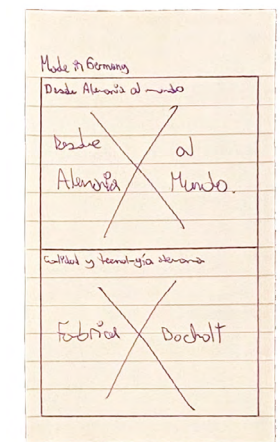 Made in Germany
Desde Alemania al mundo
Desde al
Alemania Mundo.
Calidad y tecnología alemana
Fabrica Bocholt